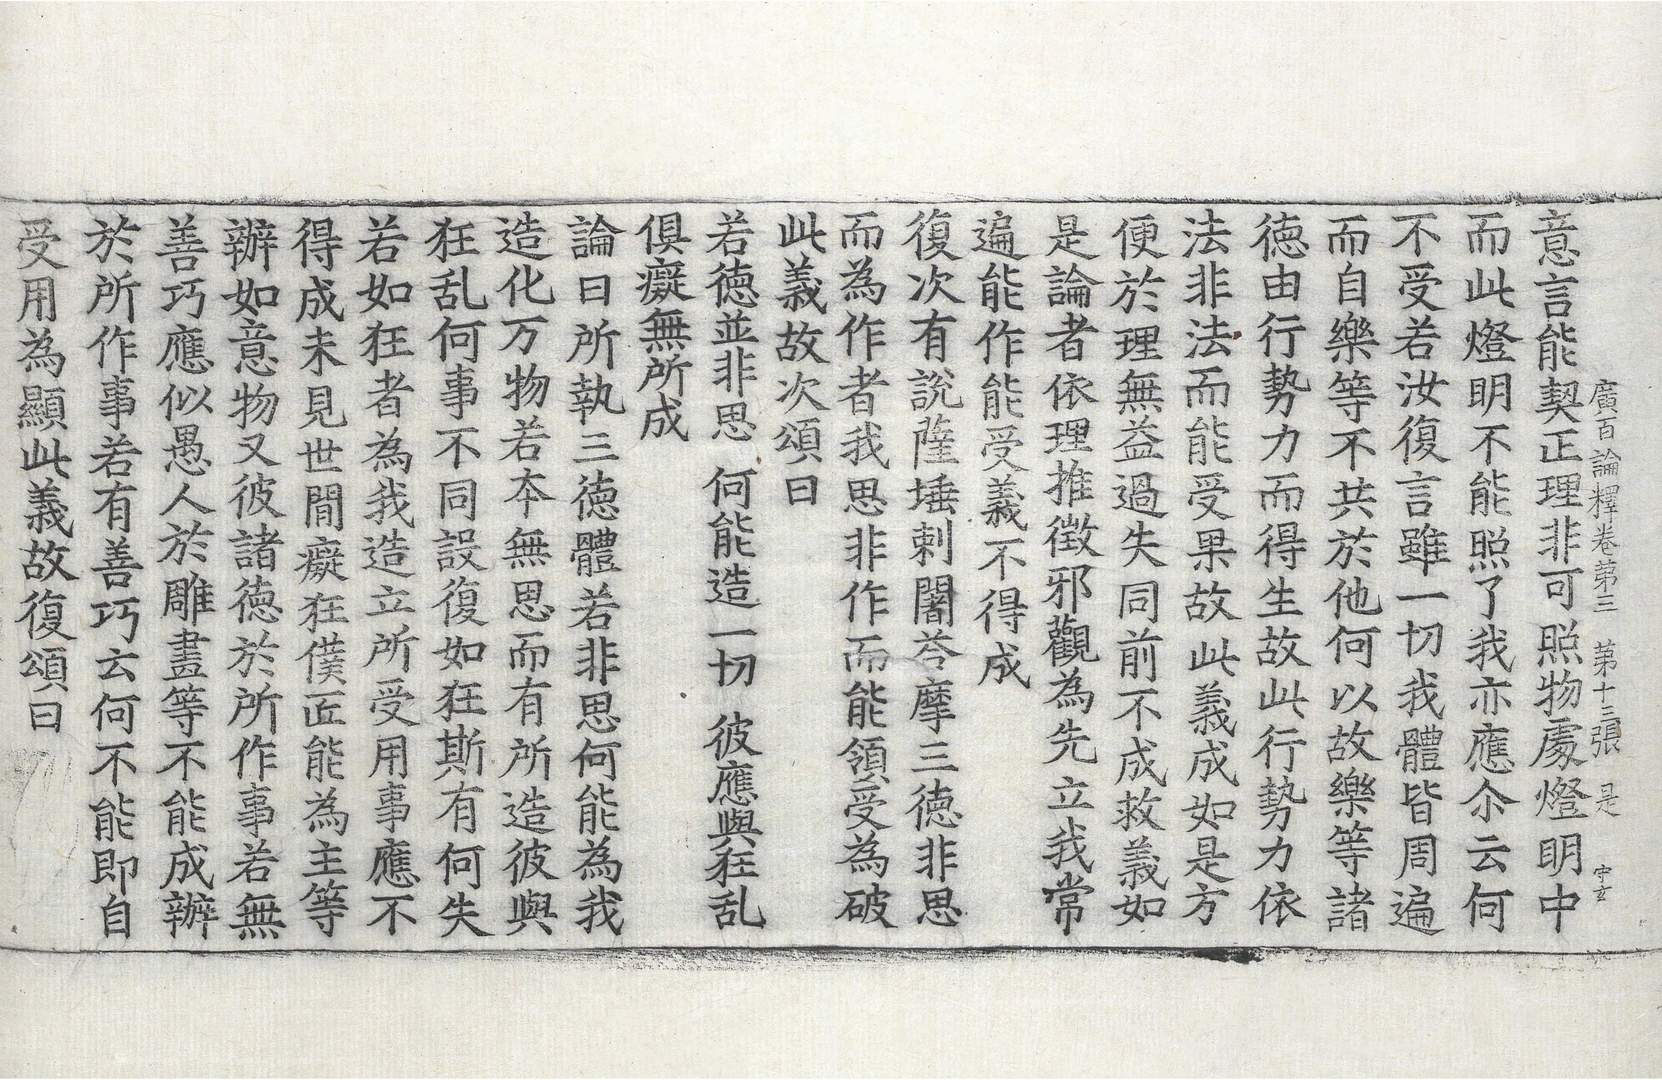 廣百論釋卷第三　第十三張　是　守玄
意言能契正理非可照物處燈明中
而此燈明不能照了我亦應尒云何
不受若汝復言雖一切我體皆周遍
而自樂等不共於他何以故樂等諸
德由行勢力而得生故此行勢力依
法非法而能受果故此義成如是方
便於理無益過失同前不成救義如
是論者依理推徵邪觀為先立我常
遍能作能受義不得成
復次有說薩埵剌闍荅摩三德非思
而為作者我思非作而能領受為破
此義故次頌曰
若德並非思　何能造一切　彼應與狂乱
俱癡無所成
論曰所執三德體若非思何能為我
造化万物若本無思而有所造彼與
狂乱何事不同設復如狂斯有何失
若如狂者為我造立所受用事應不
得成未見世間癡狂僕匠能為主等
辦如意物又彼諸德於所作事若無
善巧應似愚人於雕畫等不能成辦
於所作事若有善巧云何不能即自
受用為顯此義故復頌曰